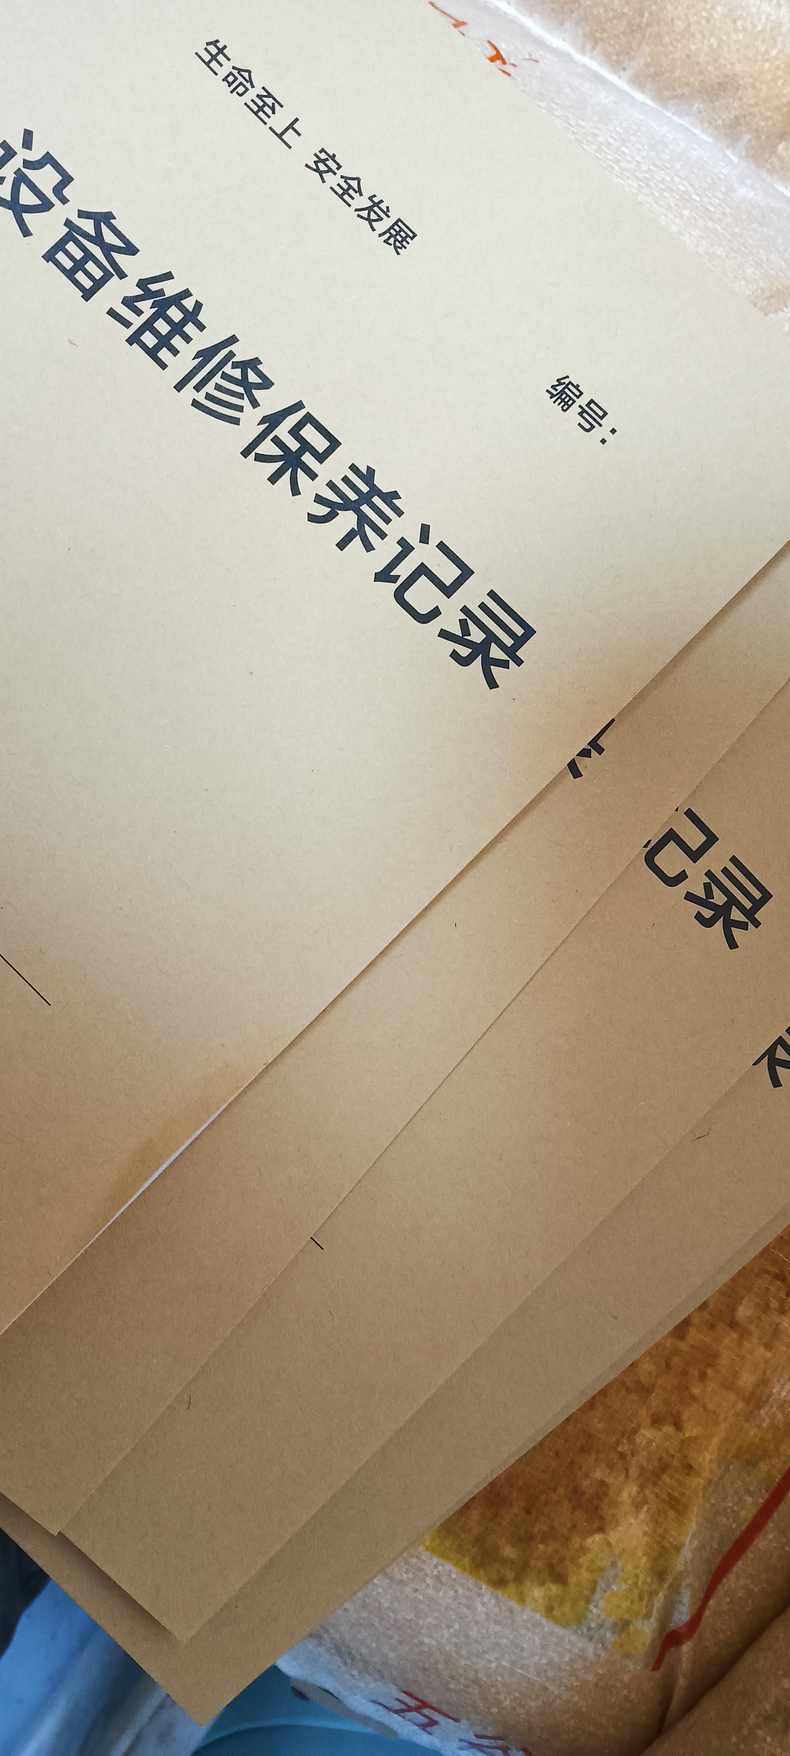 生命至上 安全发展
编号：
设备维修保养记录
记录
五谷